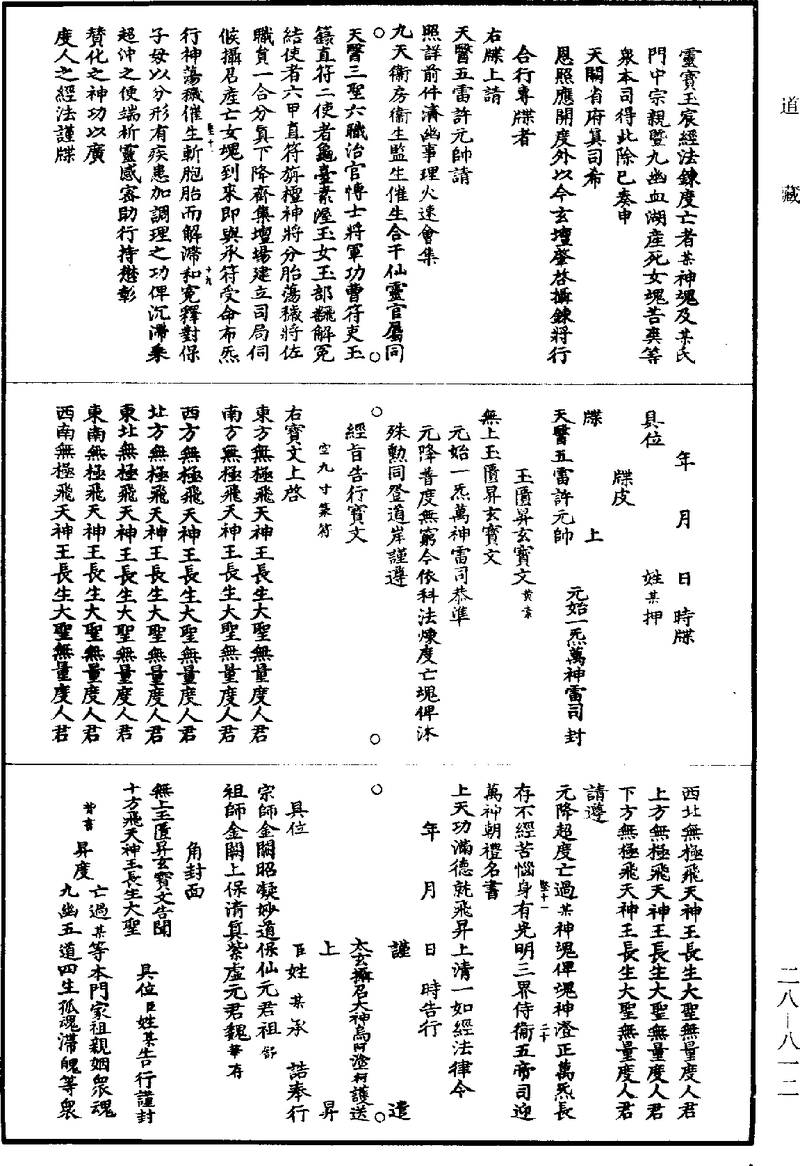 道藏
靈寶玉宸經法鍊度亡者某神魂及某氏
門中宗親暨九幽血湖產死女魂苦爽等
衆本司得此除已奏申
天闕省府真司希
恩照應開度外以今玄壇肇啓攝鍊將行
合行專牒者
右牒上請
天醫五雷許元帥請
照詳前件濟幽事理火速會集
九天衞房衞生監生催生合干仙靈官屬同
天醫三聖六職治官愽士將軍功曹符吏玉
籙直符二使者龜臺素渥玉女玉部飜解冤
結使者六甲直符旃檀神將分胎蕩穢將佐
職負一合分真下降齋集壇場建立司局伺
候攝召產亡女魂到來即與承符受命布炁
行神蕩穢催生斬胞胎而解滯和冤釋對保
卷十一
十九
子母以分形有疾患加調理之功俾沉滯乘
超沖之便端祈靈感密助行持懋彰
贊化之神功以廣
度人之經法謹牒
年月日時牒
具位姓某押
牒皮
牒上
天醫五雷許元帥元始一炁萬神雷司封
玉匱昇玄寶文黄素
無上玉匱昇玄寶文
元始一炁萬神雷司恭準
元降普度無窮今依科法煉度亡魂俾沐
殊勳同登道岸謹遵
經旨告行寶文
空九寸篆符
右寶文上啓
東方無極飛天神王長生大聖無量度人君
南方無極飛天神王長生大聖無量度人君
西方無極飛天神王長生大聖無量度人君
北方無極飛天神王長生大聖無量度人君
東北無極飛天神王長生大聖無量度人君
東南無極飛天神王長生大聖無量度人君
西南無極飛天神王長生大聖無量度人君
西北無極飛天神王長生大聖無量度人君
上方無極飛天神王長生大聖無量度人君
下方無極飛天神王長生大聖無量度人君
請遵
元降超度亡過某神魂俾魂神澄正萬炁長
卷十一
二十
存不經苦惱身有光明三界侍衞五帝司迎
萬神朝禮名書
上天功滿德就飛昇上清一如經法律令
謹遣
年月日時告行
太玄攝召大神烏阿塗柯護送
上昇
具位臣姓某承誥奉行
宗師金闕昭凝妙道保仙元君祖舒
祖師金闕上保清真紫虛元君魏華存
角封面
無上玉匱昇玄寶文告聞
十方飛天神王長生大聖具位臣姓某告行謹封
黄書昇度亡過某等本門家祖親姻衆魂
九幽五道四生孤魂滯魄等衆
二八—八一二